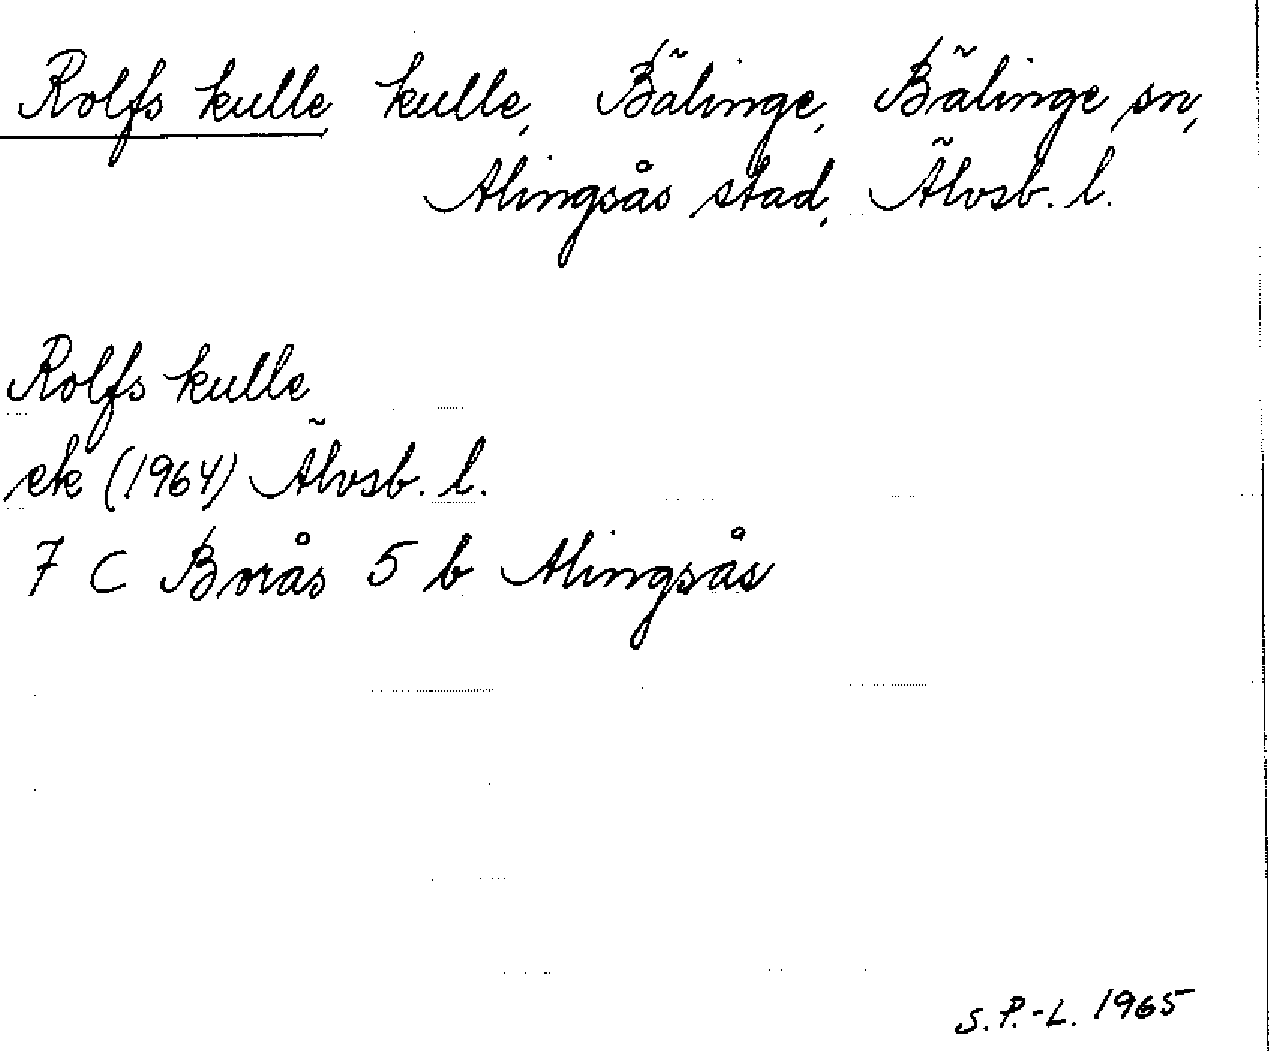 Rolfs kulle kulle, Bälinge, Bälinge sn,
Alingsås stad, Älvsb. l.
Rolfs kulle
ek (1964) Älvsb. l.
7 C Borås 5 b Alingsås
S.P.-L. 1965